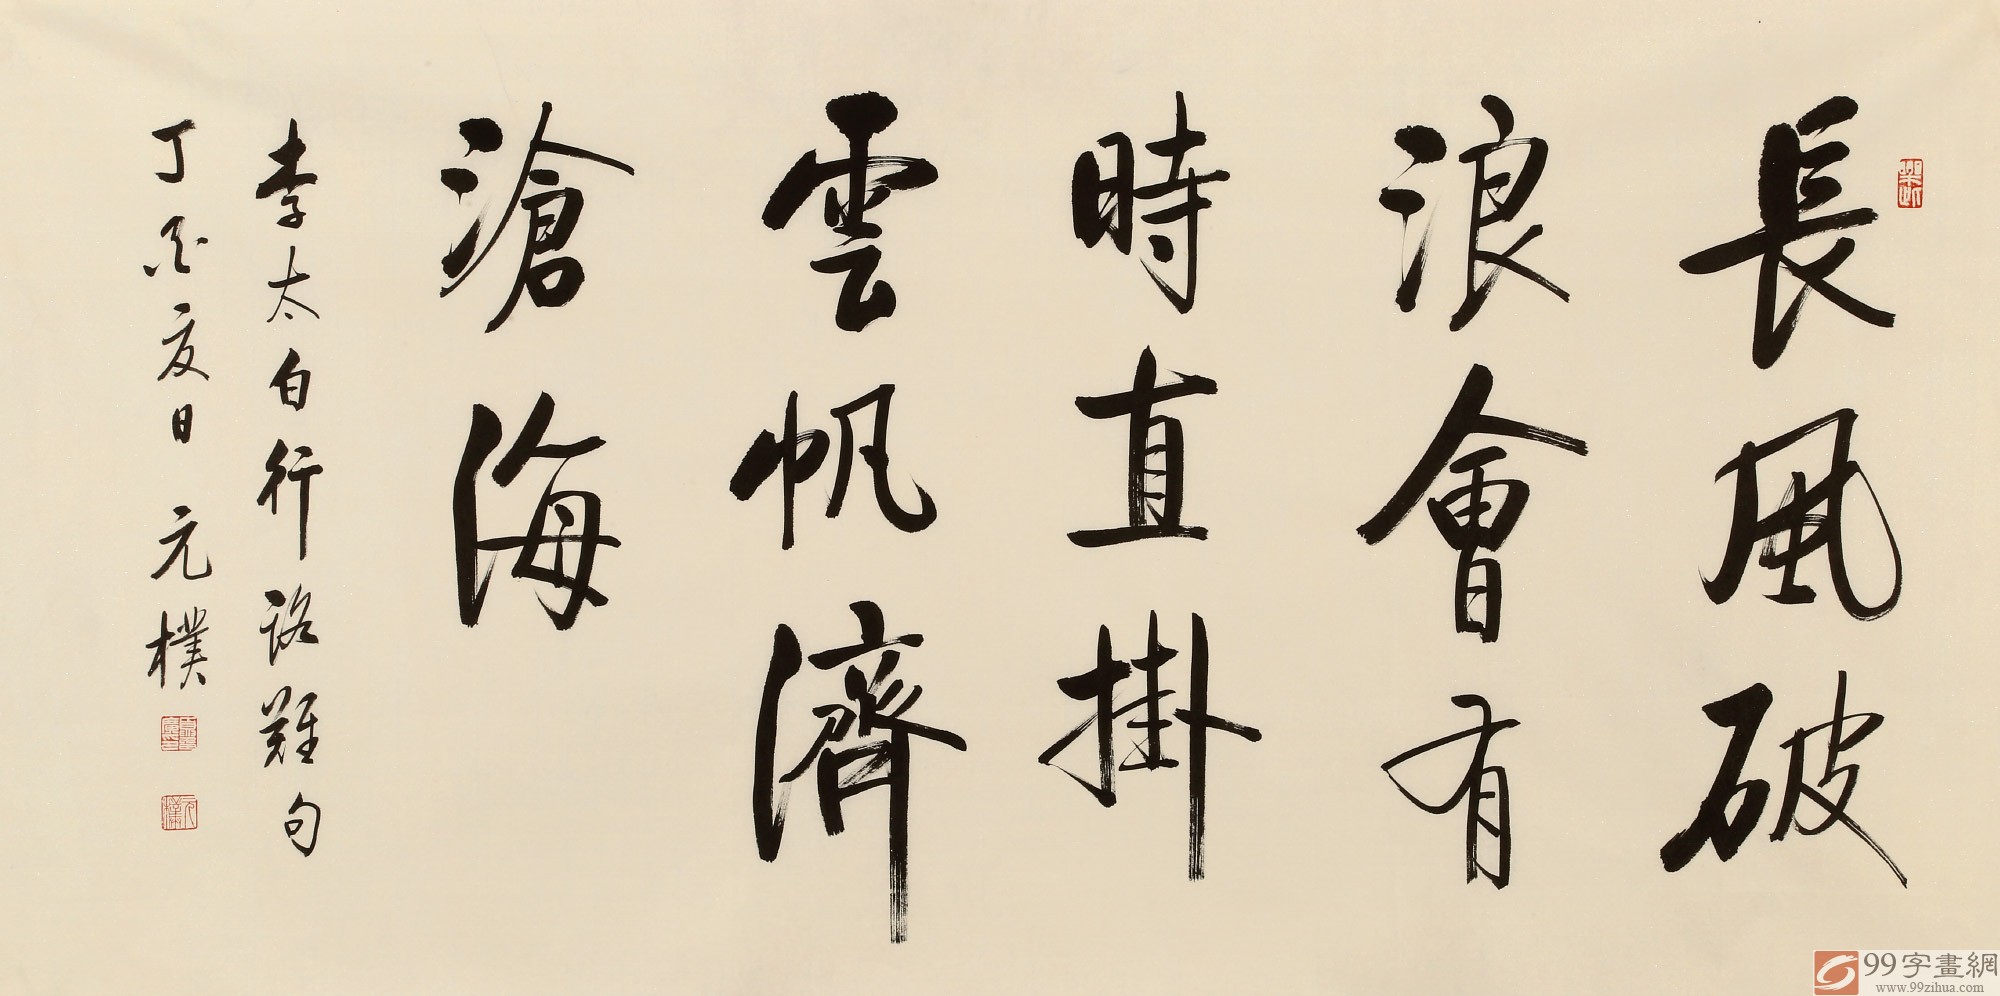 長風破
浪會有
時直掛
雲帆濟
滄海
李太白行路難句
丁酉夏日 元樸
99字畫網
www.99zihua.com